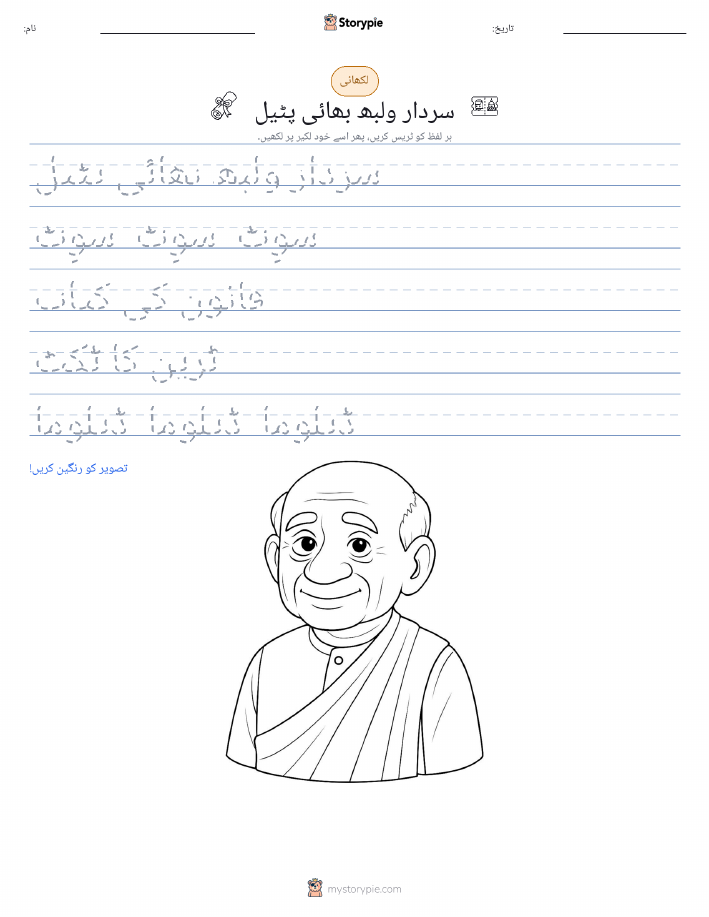 Storypie
نام:
تاریخ:
لکھائی
سردار ولبھ بھائی پٹیل
ہر لفظ کو ٹریس کریں، پھر اسے خود لکیر پر لکھیں۔
سردار ولبھ بھائی پٹیل
سوٹ سوٹ سوٹ
قانون کی کتاب
ٹرین کا ٹکٹ
ڈپلوما ڈپلوما ڈپلوما
تصویر کو رنگین کریں!
mystorypie.com